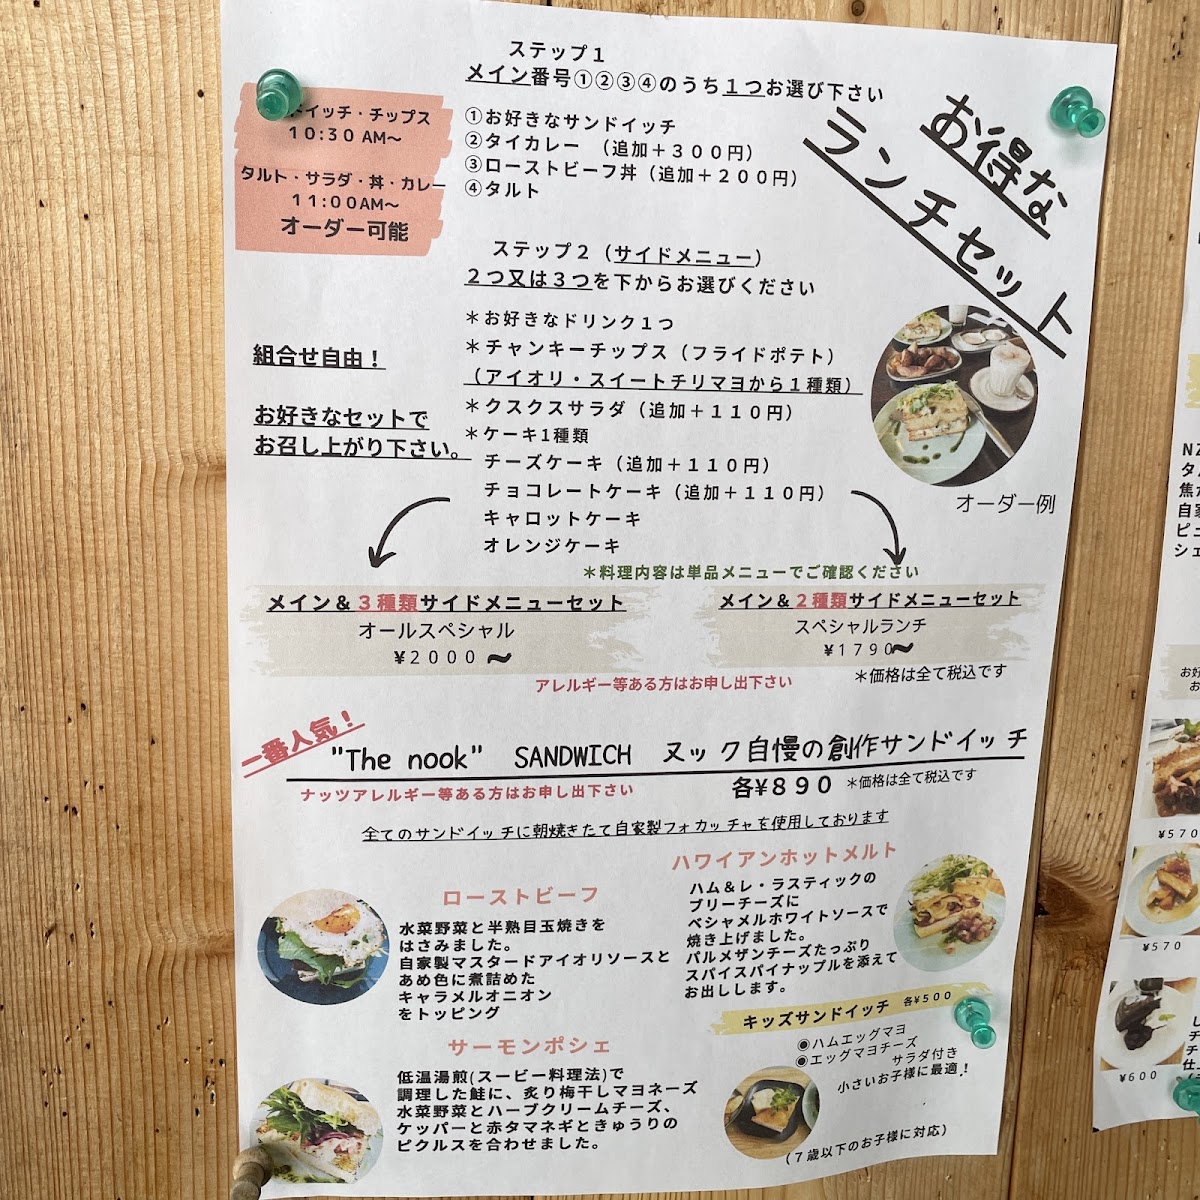 お得な
ランチセット
ステップ１
メイン番号①②③④のうち１つお選び下さい
①お好きなサンドイッチ
②タイカレー （追加＋３００円）
③ローストビーフ丼（追加＋２００円）
④タルト
ドイッチ・チップス
１０:３０ AM〜
タルト・サラダ・丼・カレー
１１:００AM〜
オーダー可能
ステップ２（サイドメニュー）
２つ又は３つを下からお選びください
＊お好きなドリンク１つ
＊チャンキーチップス（フライドポテト）
（アイオリ・スイートチリマヨから１種類）
＊クスクスサラダ（追加＋１１０円）
＊ケーキ1種類
チーズケーキ（追加＋１１０円）
チョコレートケーキ（追加＋１１０円）
キャロットケーキ
オレンジケーキ
組合せ自由！
お好きなセットで
お召し上がり下さい。
オーダー例
＊料理内容は単品メニューでご確認ください
メイン＆３種類サイドメニューセット
オールスペシャル
¥２０００〜
メイン＆２種類サイドメニューセット
スペシャルランチ
¥１７９０〜
アレルギー等ある方はお申し出下さい
＊価格は全て税込です
一番人気！
"The nook" SANDWICH ヌック自慢の創作サンドイッチ
ナッツアレルギー等ある方はお申し出下さい
各¥８９０ ＊価格は全て税込です
全てのサンドイッチに朝焼きたて自家製フォカッチャを使用しております
ローストビーフ
水菜野菜と半熟目玉焼きを
はさみました。
自家製マスタードアイオリソースと
あめ色に煮詰めた
キャラメルオニオン
をトッピング
ハワイアンホットメルト
ハム＆レ・ラスティックの
ブリーチーズに
ベシャメルホワイトソースで
焼き上げました。
パルメザンチーズたっぷり
スパイスパイナップルを添えて
お出しします。
サーモンポシェ
低温湯煎(スービー料理法)で
調理した鮭に、炙り梅干しマヨネーズ
水菜野菜とハーブクリームチーズ、
ケッパーと赤タマネギときゅうりの
ピクルスを合わせました。
キッズサンドイッチ 各¥５００
◉ハムエッグマヨ
◉エッグマヨチーズ
サラダ付き
小さいお子様に最適！
（７歳以下のお子様に対応）
NZ
タ
焦が
自家
ピ
シェ
お好
お
¥５７０
¥５７０
¥６００
し
チ
チ
仕